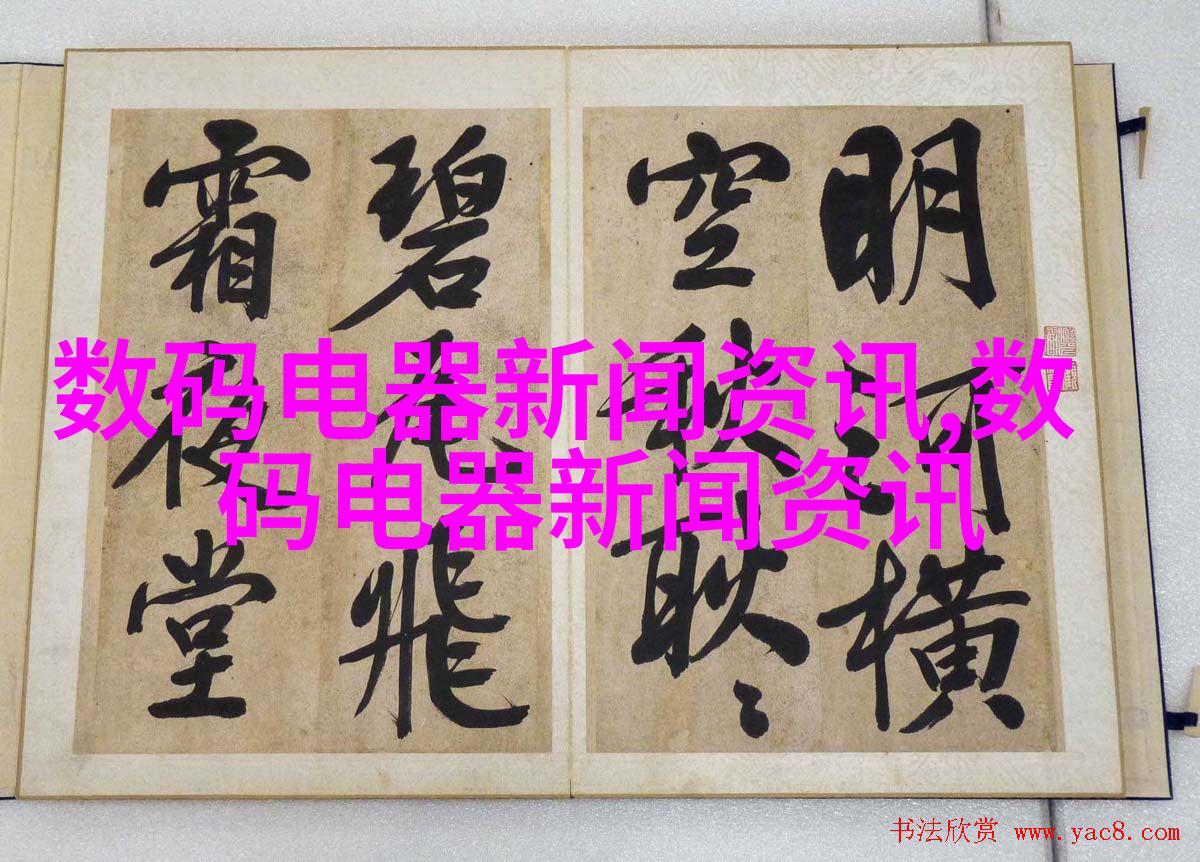 明河橫
空秋耿〻
碧瓦飛
霜夜堂
数码电器新闻资讯,数
码电器新闻资讯
书法欣赏 www.yac8.com